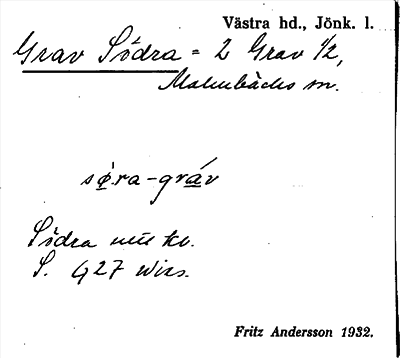 Västra hd., Jönk. l.
Grav Södra = 2 Grav 1/2,
Malmbäcks sn.
sø̀.ra-gráv
Södra utit kv.
S. G27 Wirs.
Fritz Andersson 1932.